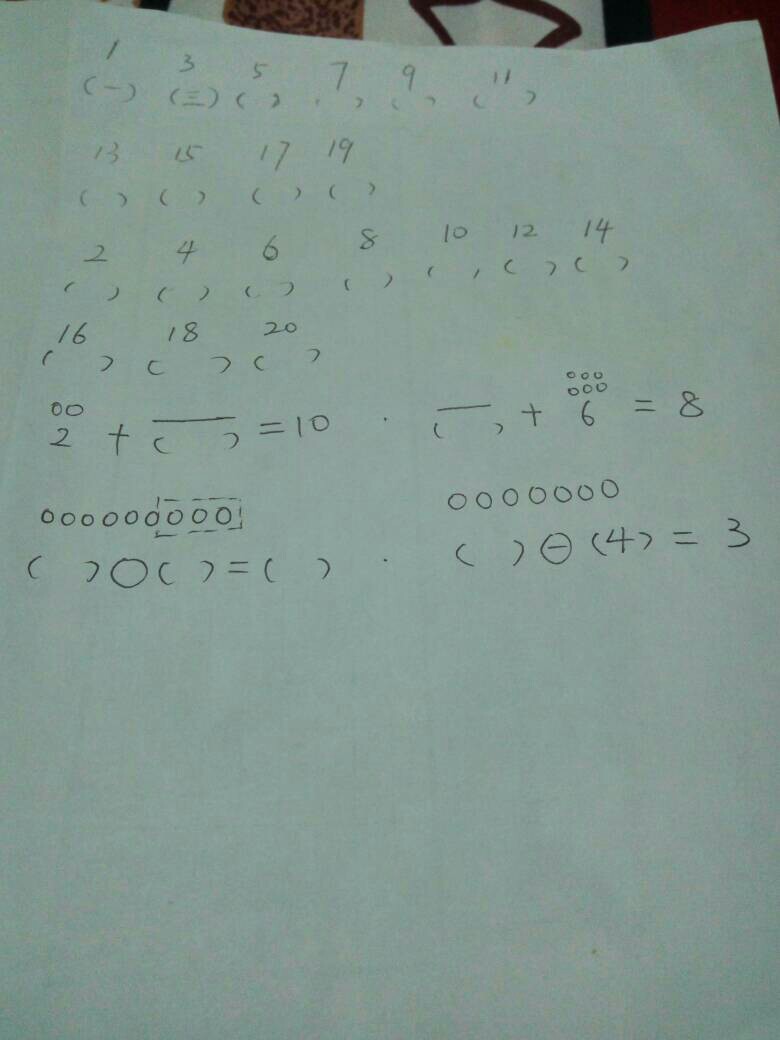 1 3 5 7 9 11
(一) (三) ( ) ( ) ( ) ( )
13 15 17 19
( ) ( ) ( ) ( )
2 4 6 8 10 12 14
( ) ( ) ( ) ( ) ( ) ( ) ( )
16 18 20
( ) ( ) ( )
2 + ( ) = 10 · ( ) + 6 = 8
( ) ○ ( ) = ( ) · ( ) ⊖ (4) = 3